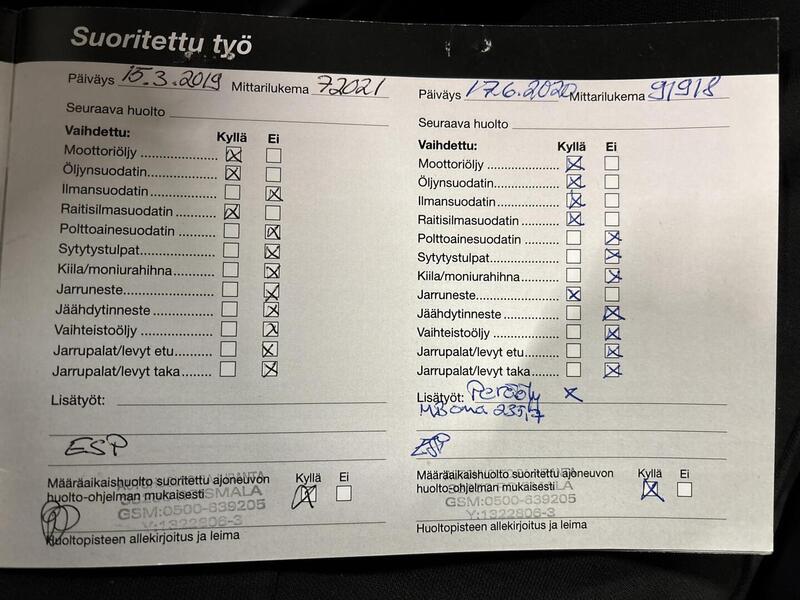 Suoritettu työ
Päiväys 15.3.2019 Mittarilukema 72021
Seuraava huolto
Vaihdettu: Kyllä Ei
Moottoriöljy
Öljynsuodatin
Ilmansuodatin
Raitisilmasuodatin
Polttoainesuodatin
Sytytystulpat
Kiila/moniurahihna
Jarruneste
Jäähdytinneste
Vaihteistoöljy
Jarrupalat/levyt etu
Jarrupalat/levyt taka
Lisätyöt:
ESP
Määräaikaishuolto suoritettu ajoneuvon Kyllä Ei
huolto-ohjelman mukaisesti
GSM:0500-839205
Y:1322806-3
Huoltopisteen allekirjoitus ja leima
Päiväys 17.6.2020 Mittarilukema 91918
Seuraava huolto
Vaihdettu: Kyllä Ei
Moottoriöljy
Öljynsuodatin
Ilmansuodatin
Raitisilmasuodatin
Polttoainesuodatin
Sytytystulpat
Kiila/moniurahihna
Jarruneste
Jäähdytinneste
Vaihteistoöljy
Jarrupalat/levyt etu
Jarrupalat/levyt taka
Lisätyöt: Peräöljy x
MB oma 235,7
ESP
Määräaikaishuolto suoritettu ajoneuvon Kyllä Ei
huolto-ohjelman mukaisesti
GSM:0500-839205
Y:1322806-3
Huoltopisteen allekirjoitus ja leima